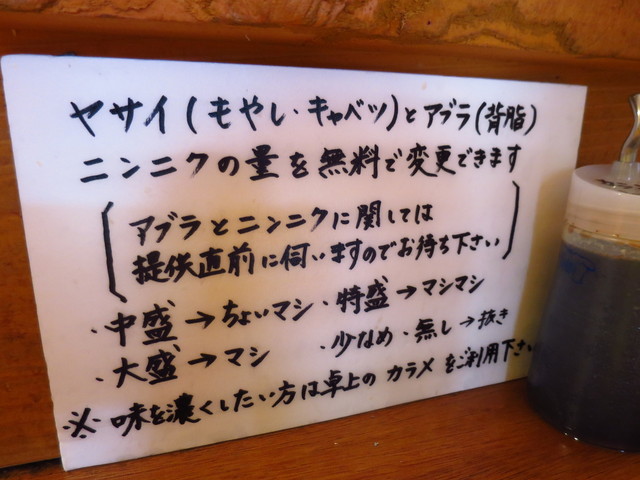 ヤサイ(もやし・キャベツ)とアブラ(背脂)
ニンニクの量を無料で変更できます
アブラとニンニクに関しては
提供直前に伺いますのでお待ち下さい
・中盛→ちょいマシ ・特盛→マシマシ
・大盛→マシ 少なめ・無し→抜き
※ 味を濃くしたい方は卓上の カラメ をご利用下さい